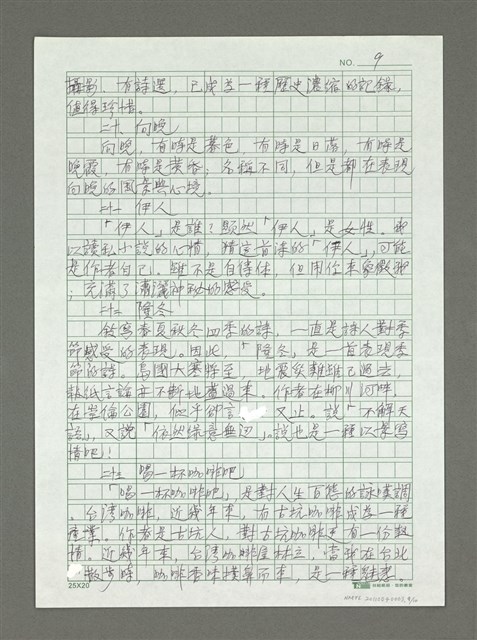 NO. 9
攝影、有詩選,已成為一種歷史濃縮的記錄,
值得珍惜。
二十、向晚
向晚,有時是暮色,有時是日落,有時是
晚霞,有時是黃昏;名稱不同,但是都在表現
向晚的風景與心境。
二十一 伊人
「伊人」是誰?顯然「伊人」是女性。
以讀私小說的心情,猜這首詩的「伊人」,可能
是作者自己。雖不是自傳体,但用作來象徵
;充滿了瀟灑沖動的感受。
二十二 隆冬
敘寫春夏秋冬四季的詩,一直是詩人對季
節感受的表現。因此,「隆冬」是一首表現季
節的詩。島國大寒將至,地震後
報紙言論不斷 。作者在柳川河畔,
在 公園, 又止。說「不解天
語」,又說「依然綠意無邊」。說也是一種以 寫
情吧!
二十三 喝一杯咖啡吧
「喝一杯咖啡吧」,是對人生百態的詠嘆調
。台灣咖啡,近幾年來,而古坑咖啡成為一種
產業。作者是古坑人,對古坑咖啡更有一份
情。近幾年來,台灣咖啡屋林立,當我在台北
散步時,咖啡香味撲鼻而來,是一種
25X20